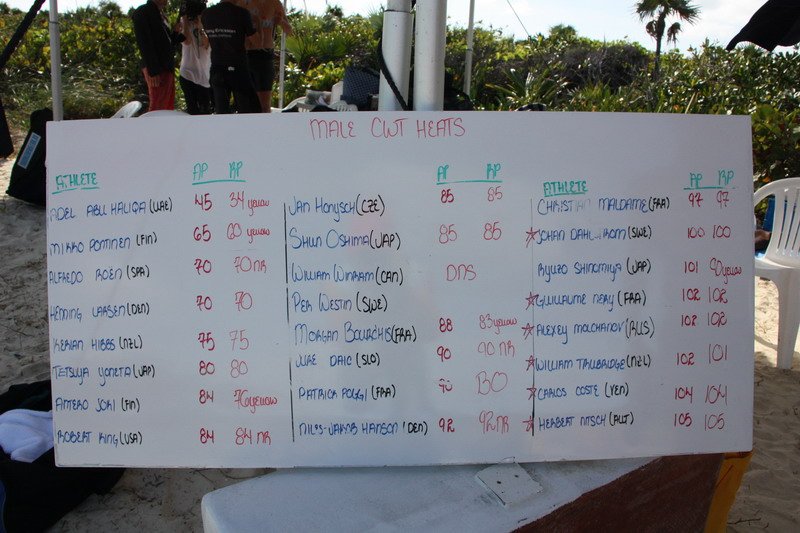 MALE CWT HEATS
ATHLETE AP RP
ADEL ABU HALIQA (UAE) 45 34 yellow
MIKKO PONTINEN (FIN) 65 20 yellow
ALFREDO ROEN (SPA) 70 70 NR
HENNING LARSEN (DEN) 70 70
KERIAN HIBBS (NZL) 75 75
TETSUJA YONETA (JAP) 80 80
ANTERO JOKI (FIN) 84 76 yellow
ROBERT KING (USA) 84 84 NR
AP RP
JAN HONYSCH (CZE) 85 85
SHUN OSHIMA (JAP) 85 85
WILLIAM WINRAM (CAN) DNS
PER WESTIN (SWE)
MORGAN BOURCHIS (FRA) 88 83 yellow
JURE DAIC (SLO) 90 90 NR
PATRICK POGGI (FRA) 90 BO
NILS-JAKOB HANSON (DEN) 92 92 NR
ATHLETE AP RP
CHRISTIAN MALDAME (FRA) 97 97
JOHAN (SWE) 100 100
RYUZO SHINOMIYA (JAP) 101 90 yellow
GUILLAUME NERY (FRA) 102 102
ALEXEY MOLCHANOV (RUS) 102 102
WILLIAM TRUBRIDGE (NZL) 102 101
CARLOS COSTE (VEN) 104 104
HERBERT NITSCH (AUT) 105 105